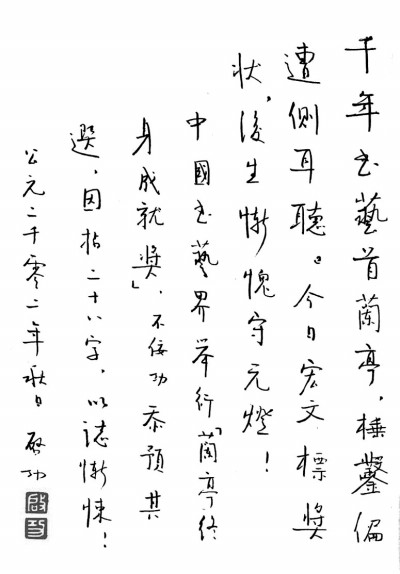 千年书藝首蘭亭,棰鑿偏
遭側耳聽。今日宏文標奬
状,後生慚愧守元燈!
中國书藝界举行「蘭亭终
身成就奬」,不佞功忝預其
選,因拈二十八字,以誌慚悚!
公元二千零二年秋日 啟功
啟功